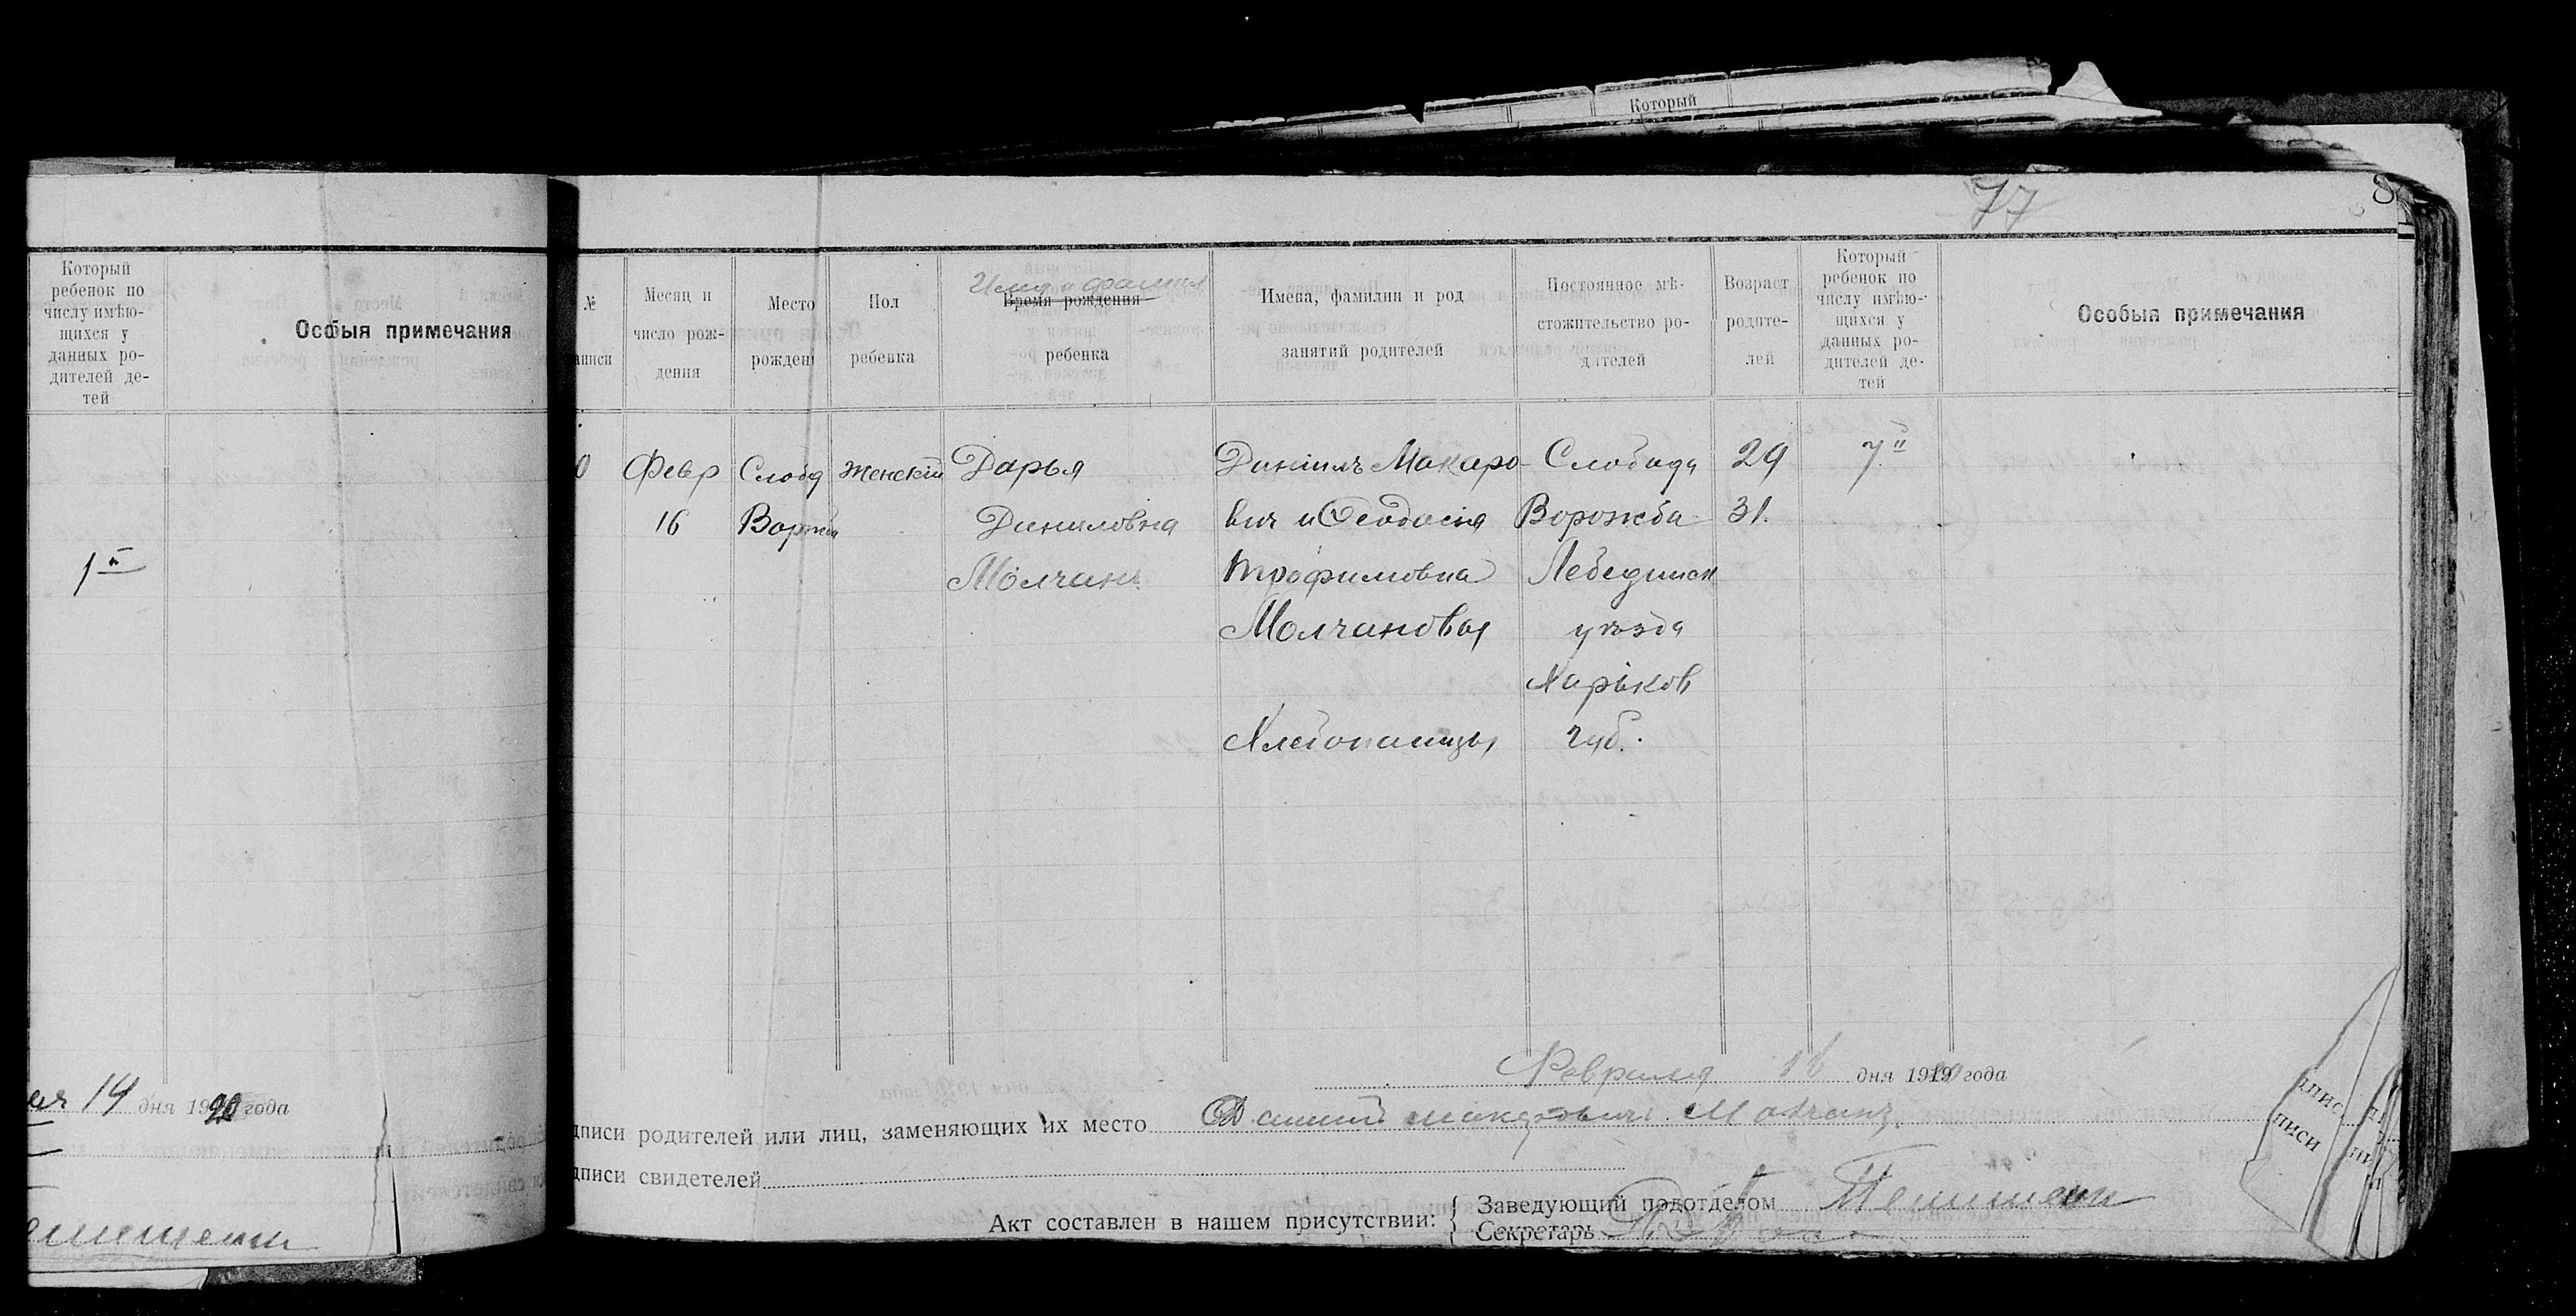 Который
77
8
Который
ребенок по
числу имѣю-
щихся у
данных ро-
дителей де-
тей
Особыя примечания
1й
14 дня 1920 года
№
Месяц и
число рож-
дения
Место
рождени
Пол
ребенка
Имя и фамилия
Время рождения
ребенка
Имена, фамилии и род
занятий родителей
Постоянное мѣ-
стожительство ро-
дителей
Возраст
родите-
лей
Который
ребенок по
числу имѣю-
щихся у
данных ро-
дителей де-
тей
Особыя примечания
0 Февр Слобд Женскій Дарья Даніилъ Макаро- Слобода 29 7й
16 Воржба Даниловна вич и Ѳеодосія Ворожба 31.
Молчанъ Трофимовна Лебединск
Молчановы уѣзда
Харьков
Хлебопашцы губ.
Февраля 16 дня 1920 года
дписи родителей или лиц, заменяющих их место Даниил Макарович Молчанъ
дписи свидетелей
Акт составлен в нашем присутствии:
Заведующий подотделом
Секретарь